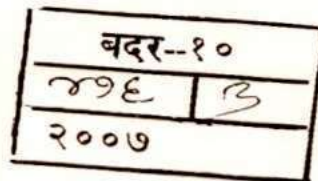 बदर--१०
४१६ ३
२००७